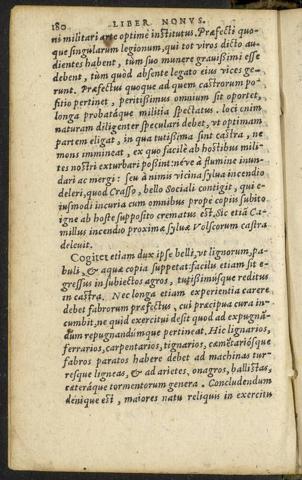 180 LIBER NONVS.
ni militari arte optimè institutus. Præfecti quo-
que singularum legionum, qui tot viros dicto au-
dientes habent, tum suo munere grauissimi esse
debent, tùm quòd absente legato eius vices ge-
runt. Præfectus quoque ad quem castrorum po-
sitio pertinet, peritißimus omnium sit oportet,
longa probatáque militia spectatus. loci enim
naturam diligenter speculari debet, vt optimam
partem eligat, in qua tutißima sint castra, ne
mons immineat, ex quo facilè ab hostibus mili-
tes nostri exturbari poßint: néve à flumine inun-
dari ac mergi: seu à nimis vicina sylua incendio
deleri, quod Crasso, bello Sociali contigit, qui e-
iusmodi incuria cum omnibus prope copiis subito
igne ab hoste supposito crematus est. Sic etiã Ca-
millus incendio proximæ syluæ Volscorum castra
deleuit.
Cogitet etiam dux ipse belli, vt lignorum, pa-
buli, & aquæ copia suppetat: facilis etiam sit e-
gressus in subiectos agros, tutißimúsque reditus
in castra. Nec longa etiam experientia carere
debet fabrorum præfectus, cui præcipua cura in-
cumbit, ne quid exercitui desit quod ad expugnã-
dum repugnandúmque pertineat. Hic lignarios,
ferrarios, carpentarios, tignarios, cæmẽtariósque
fabros paratos habere debet ad machinas tur-
résque ligneas, & ad arietes, onagros, ballistas,
cæteráque tormentorum genera. Concludendum
denique est, maiores natu reliquis in exercitu